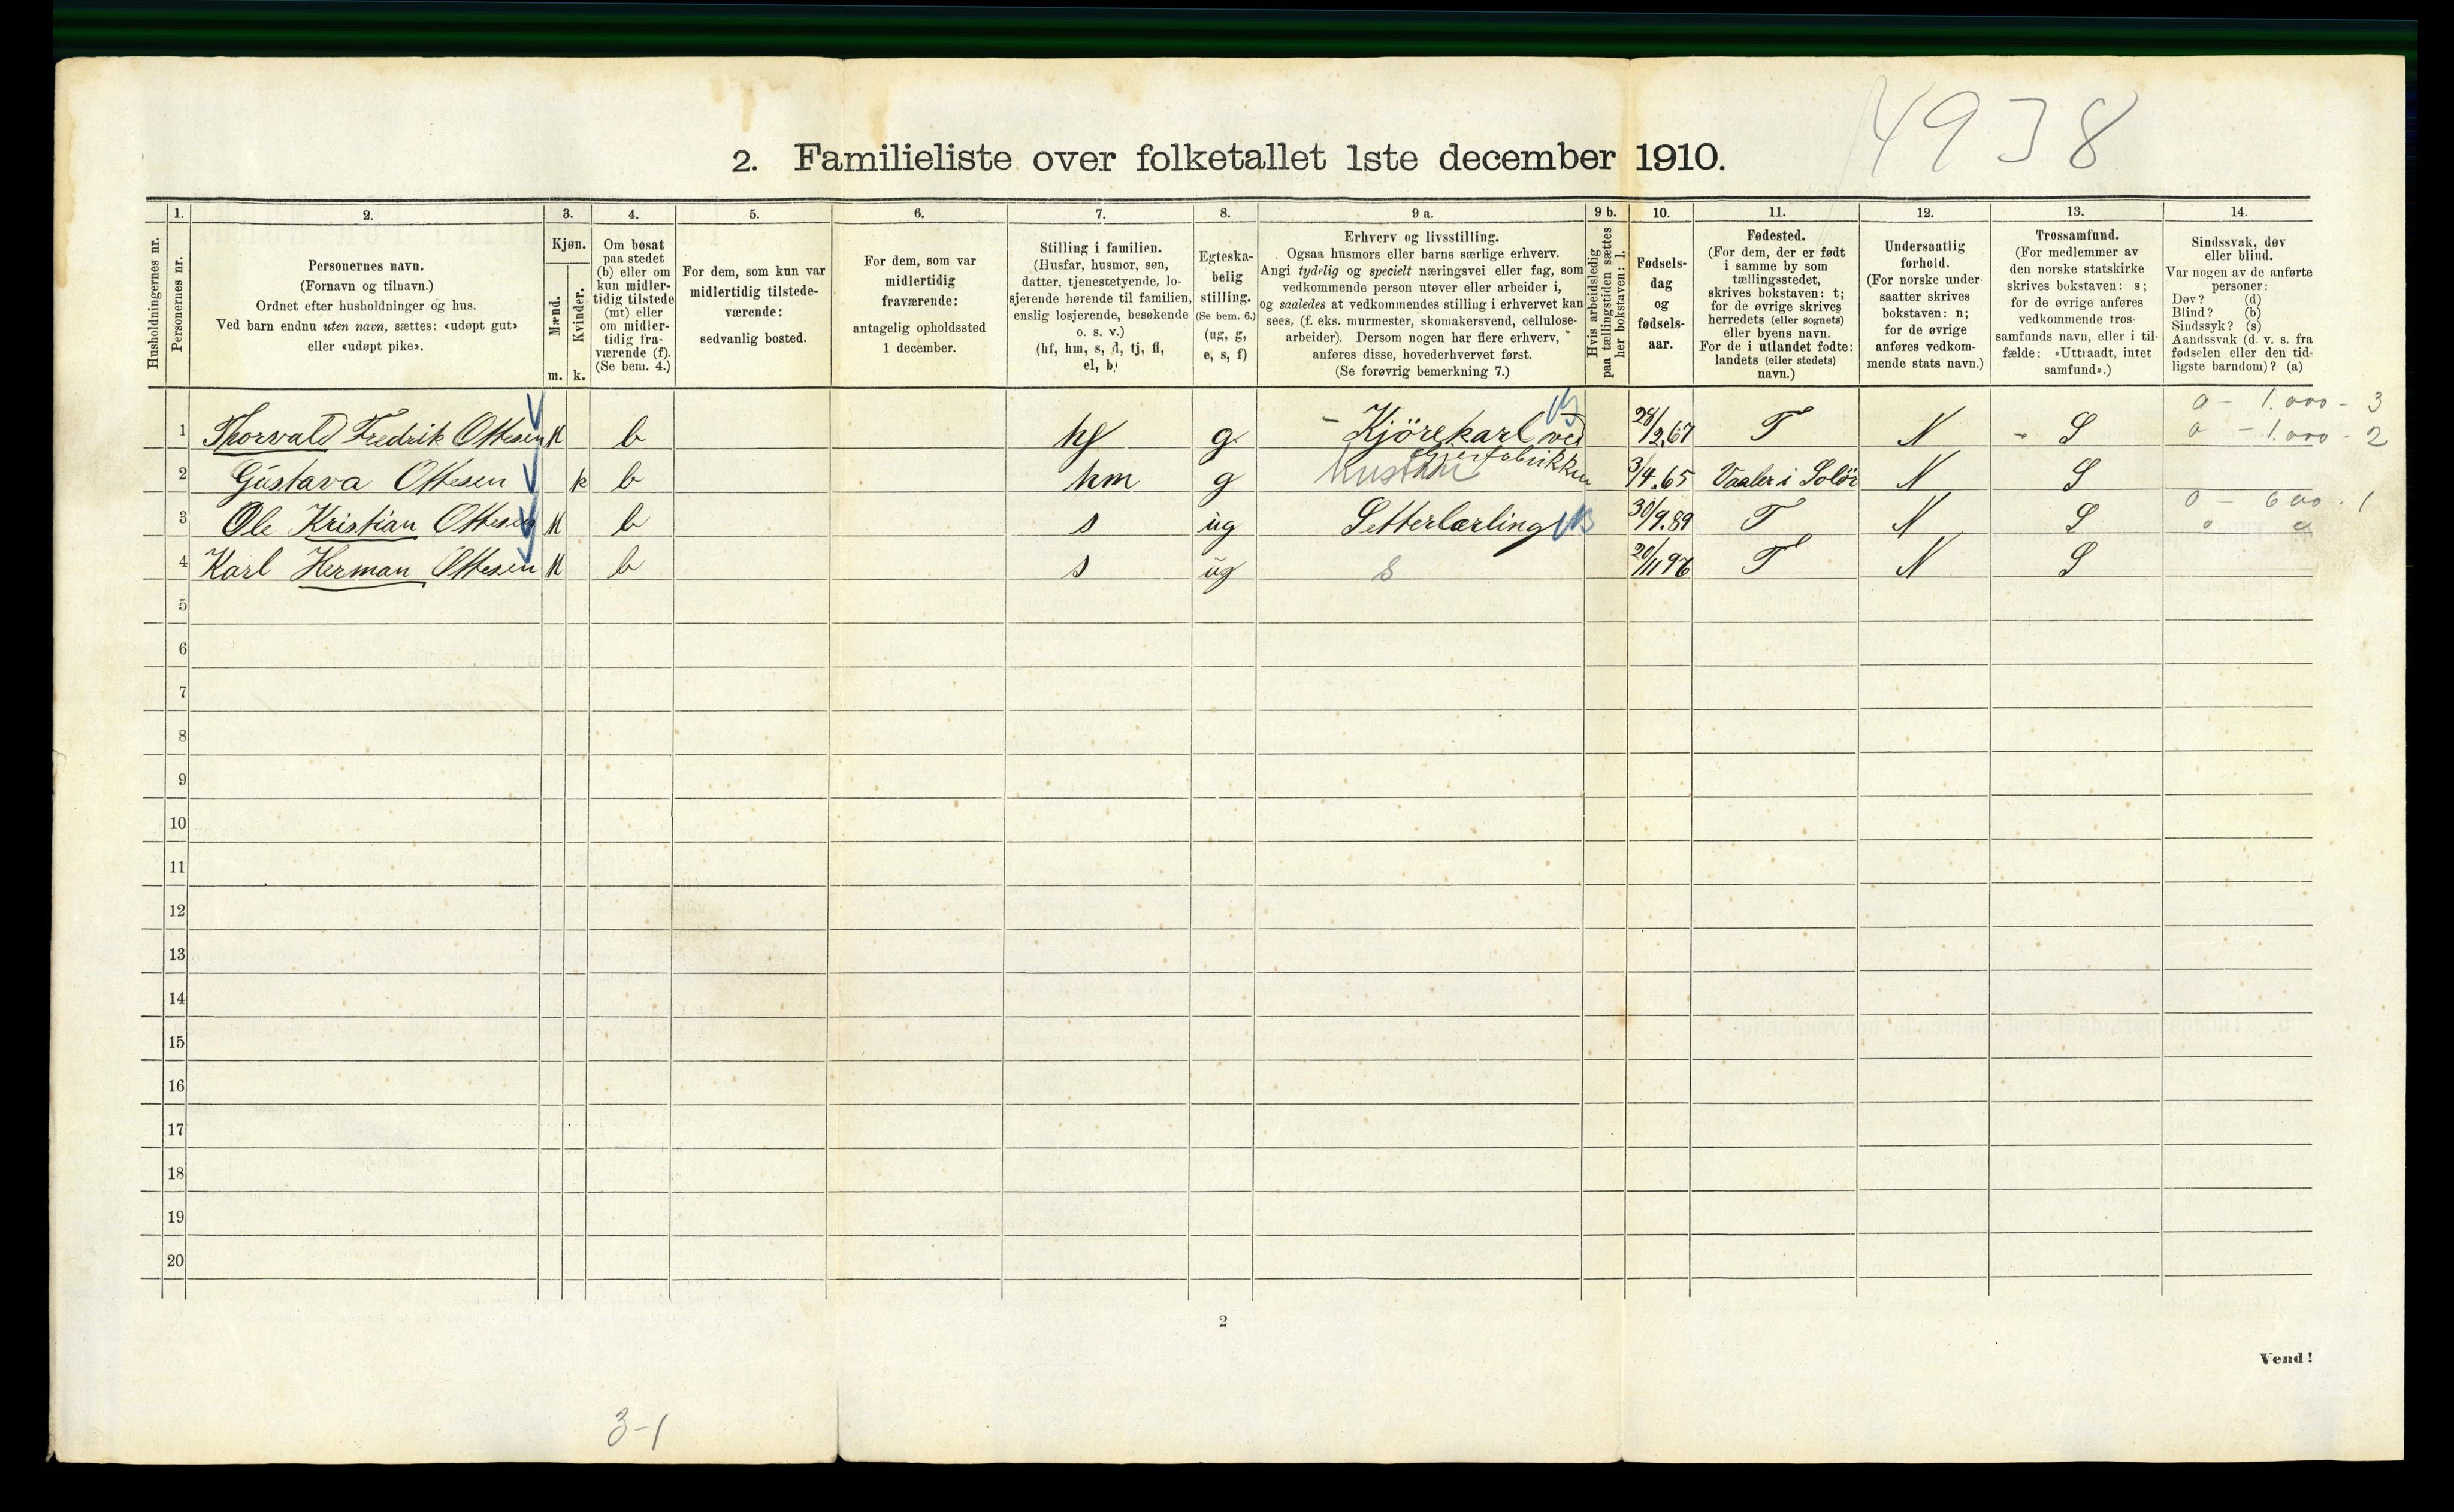 4938
2. Familieliste over folketallet 1ste december 1910.
1. 2. 3. 4. 5. 6. 7. 8. 9 a. 9 b. 10. 11. 12. 13. 14.
Husholdningernes nr.
Personernes nr.
Personernes navn.
(Fornavn og tilnavn.)
Ordnet efter husholdninger og hus.
Ved barn endnu uten navn, sættes: «udøpt gut»
eller «udøpt pike».
Kjøn.
Mænd.
Kvinder.
m. k.
Om bosat
paa stedet
(b) eller om
kun midler-
tidig tilstede
(mt) eller
om midler-
tidig fra-
værende (f).
(Se bem. 4.)
For dem, som kun var
midlertidig tilstede-
værende:
sedvanlig bosted.
For dem, som var
midlertidig
fraværende:
antagelig opholdssted
1 december.
Stilling i familien.
(Husfar, husmor, søn,
datter, tjenestetyende, lo-
sjerende hørende til familien,
enslig losjerende, besøkende
o. s. v.)
(hf, hm, s, d, tj, fl,
el, b)
Egteska-
belig
stilling.
(Se bem. 6.)
(ug, g,
e, s, f)
Erhverv og livsstilling.
Ogsaa husmors eller barns særlige erhverv.
Angi tydelig og specielt næringsvei eller fag, som
vedkommende person utøver eller arbeider i,
og saaledes at vedkommendes stilling i erhvervet kan
sees, (f. eks. murmester, skomakersvend, cellulose-
arbeider). Dersom nogen har flere erhverv,
anføres disse, hovederhvervet først.
(Se forøvrig bemerkning 7.)
Hvis arbeidsledig
paa tællingstiden sættes
her bokstaven: l.
Fødsels-
dag
og
fødsels-
aar.
Fødested.
(For dem, der er født
i samme by som
tællingsstedet,
skrives bokstaven: t;
for de øvrige skrives
herredets (eller sognets)
eller byens navn.
For de i utlandet fødte:
landets (eller stedets)
navn.)
Undersaatlig
forhold.
(For norske under-
saatter skrives
bokstaven: n;
for de øvrige
anføres vedkom-
mende stats navn.)
Trossamfund.
(For medlemmer av
den norske statskirke
skrives bokstaven: s;
for de øvrige anføres
vedkommende tros-
samfunds navn, eller i til-
fælde: «Uttraadt, intet
samfund».)
Sindssvak, døv
eller blind.
Var nogen av de anførte
personer:
Døv? (d)
Blind? (b)
Sindssyk? (s)
Aandssvak (d. v. s. fra
fødselen eller den tid-
ligste barndom)? (a)
0 - 1.000 - 3
1 Thorvald Fredrik Ottesen M b hf g - Kjørekarl ved 28/2.67 T N - S 0 - 1.000 - 2
2 Gustava Ottesen k b hm g hustru 3/4.65 Vaaler i Solør N S
0 - 600 - 1
3 Ole Kristian Ottesen M b s ug Setterlærling 30/9.89 T N S 0 0
4 Karl Herman Ottesen M b s ug s 20/11 96 T N S
5
6
7
8
9
10
11
12
13
14
15
16
17
18
19
20
2
Vend!
3-1